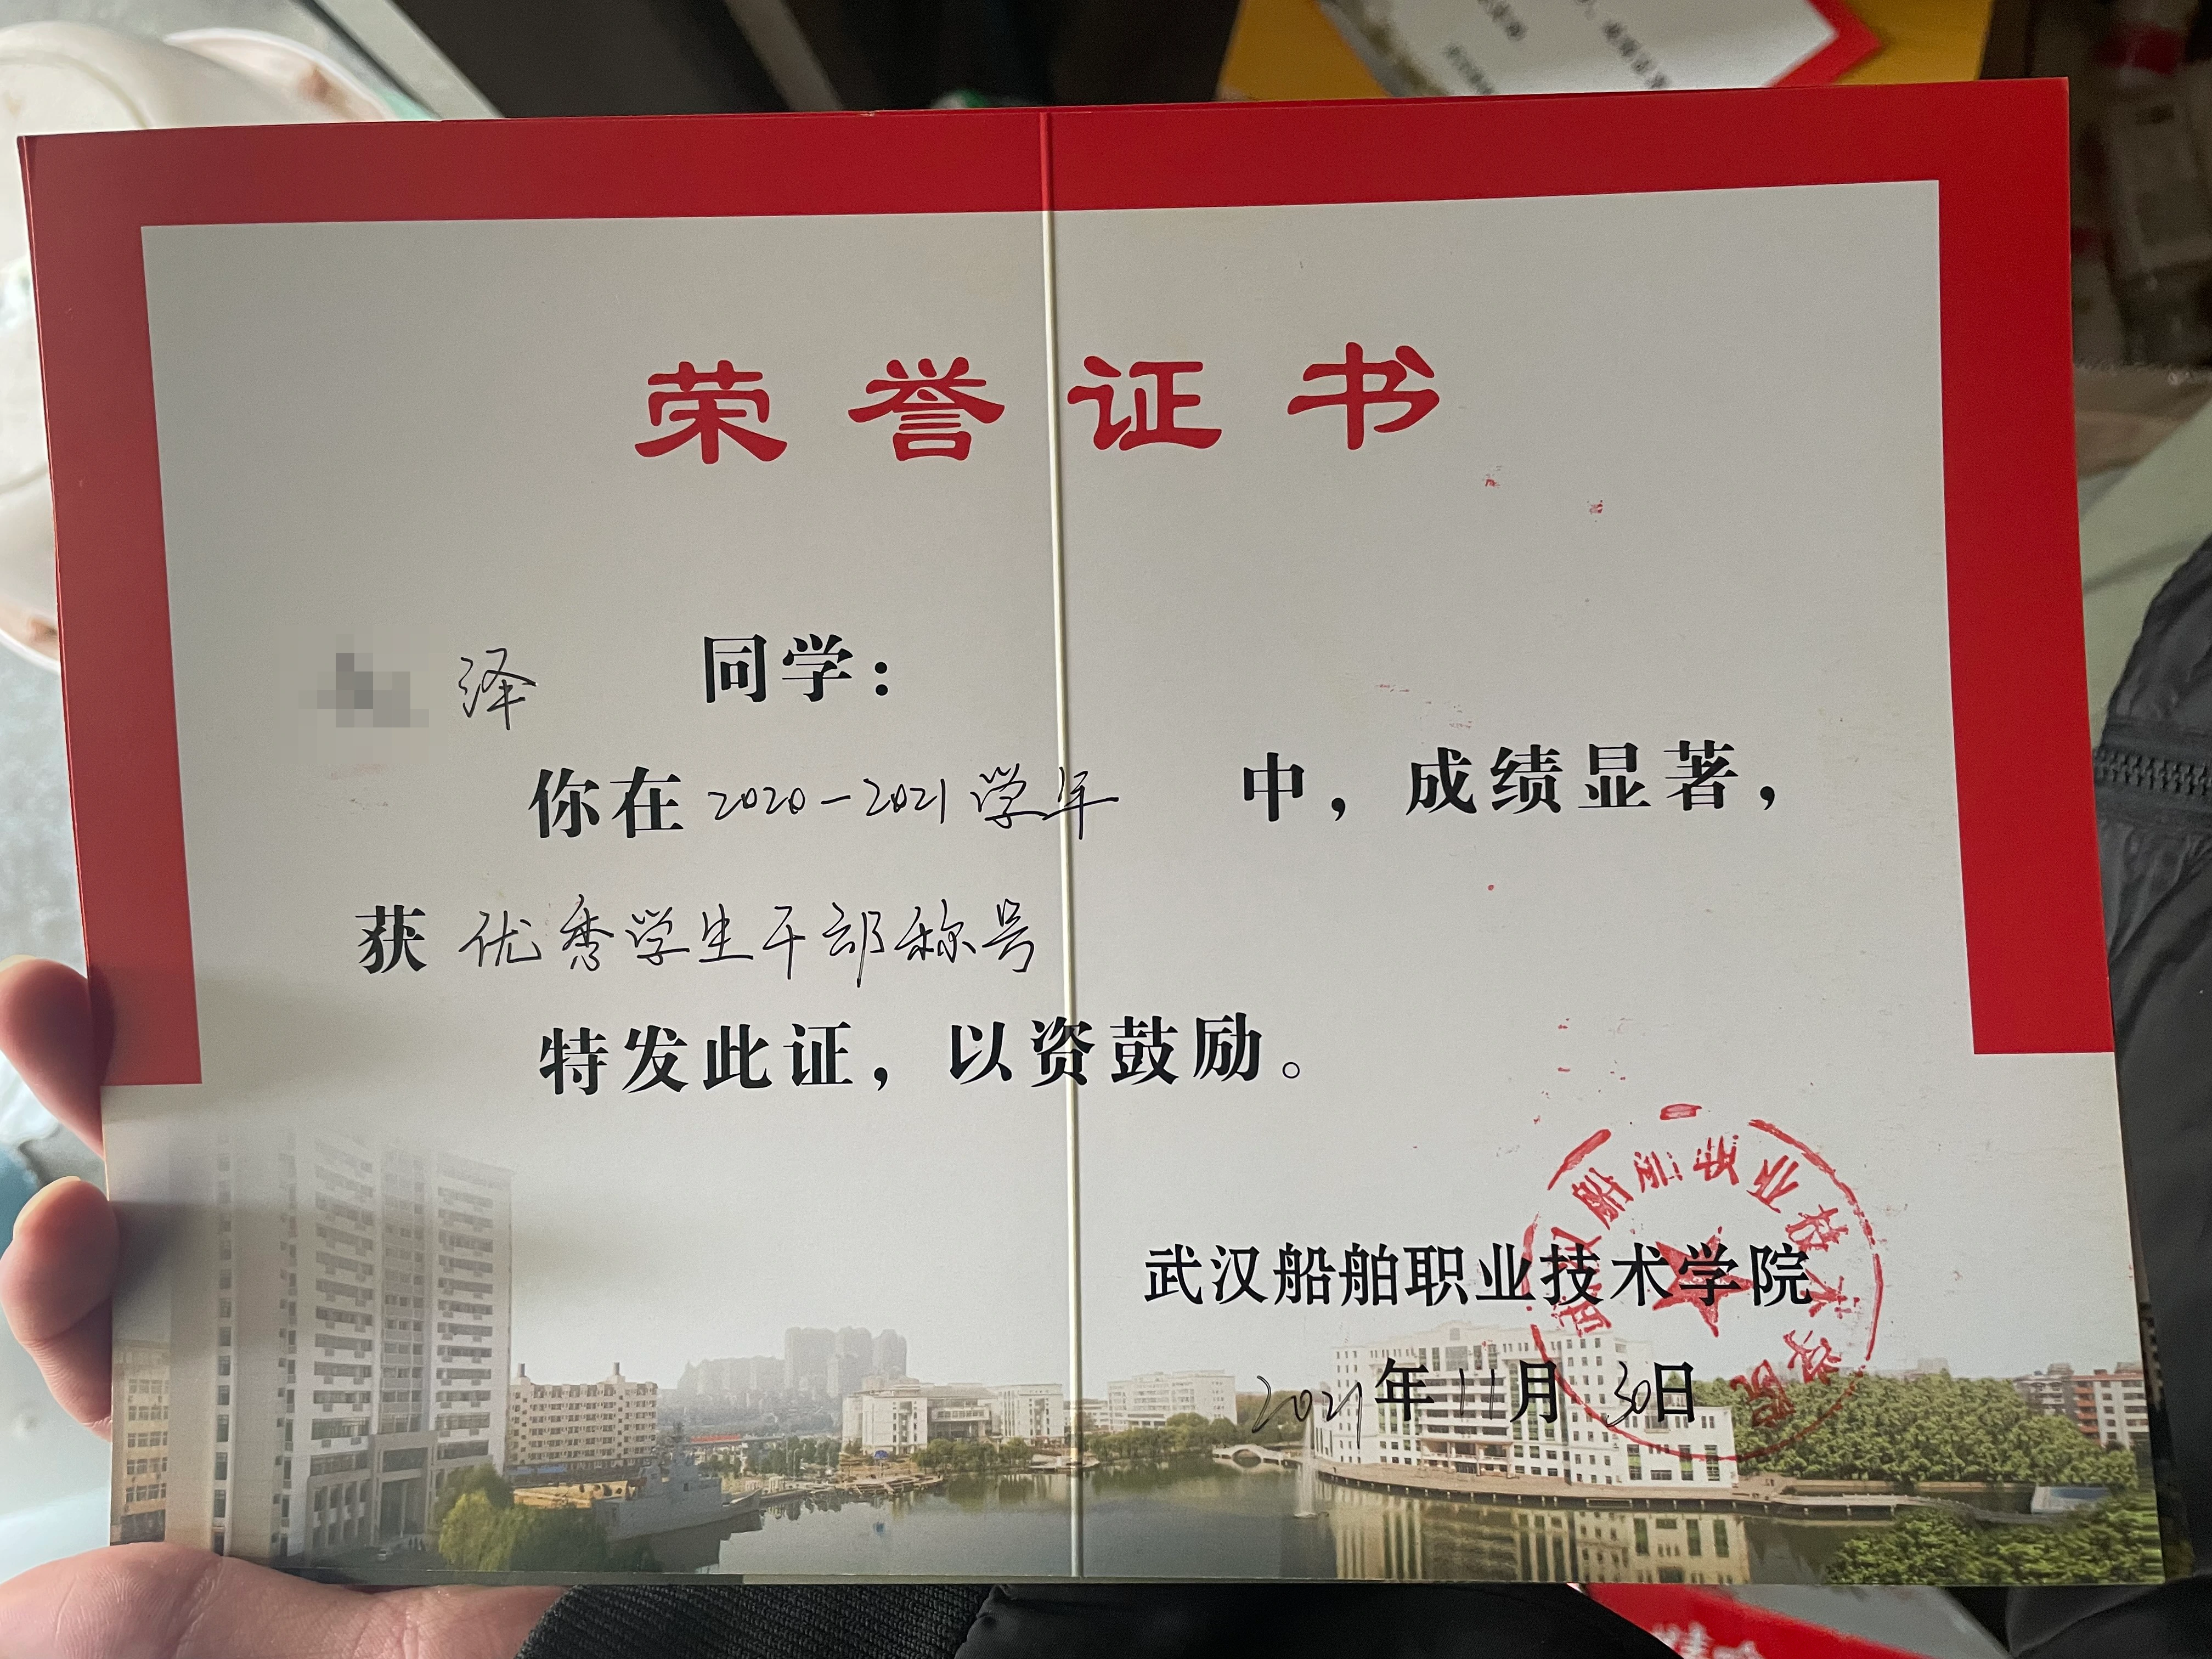 荣誉证书
泽 同学：
你在 2020-2021 学年 中，成绩显著，
获 优秀学生干部称号
特发此证，以资鼓励。
武汉船舶职业技术学院
2021年11月30日